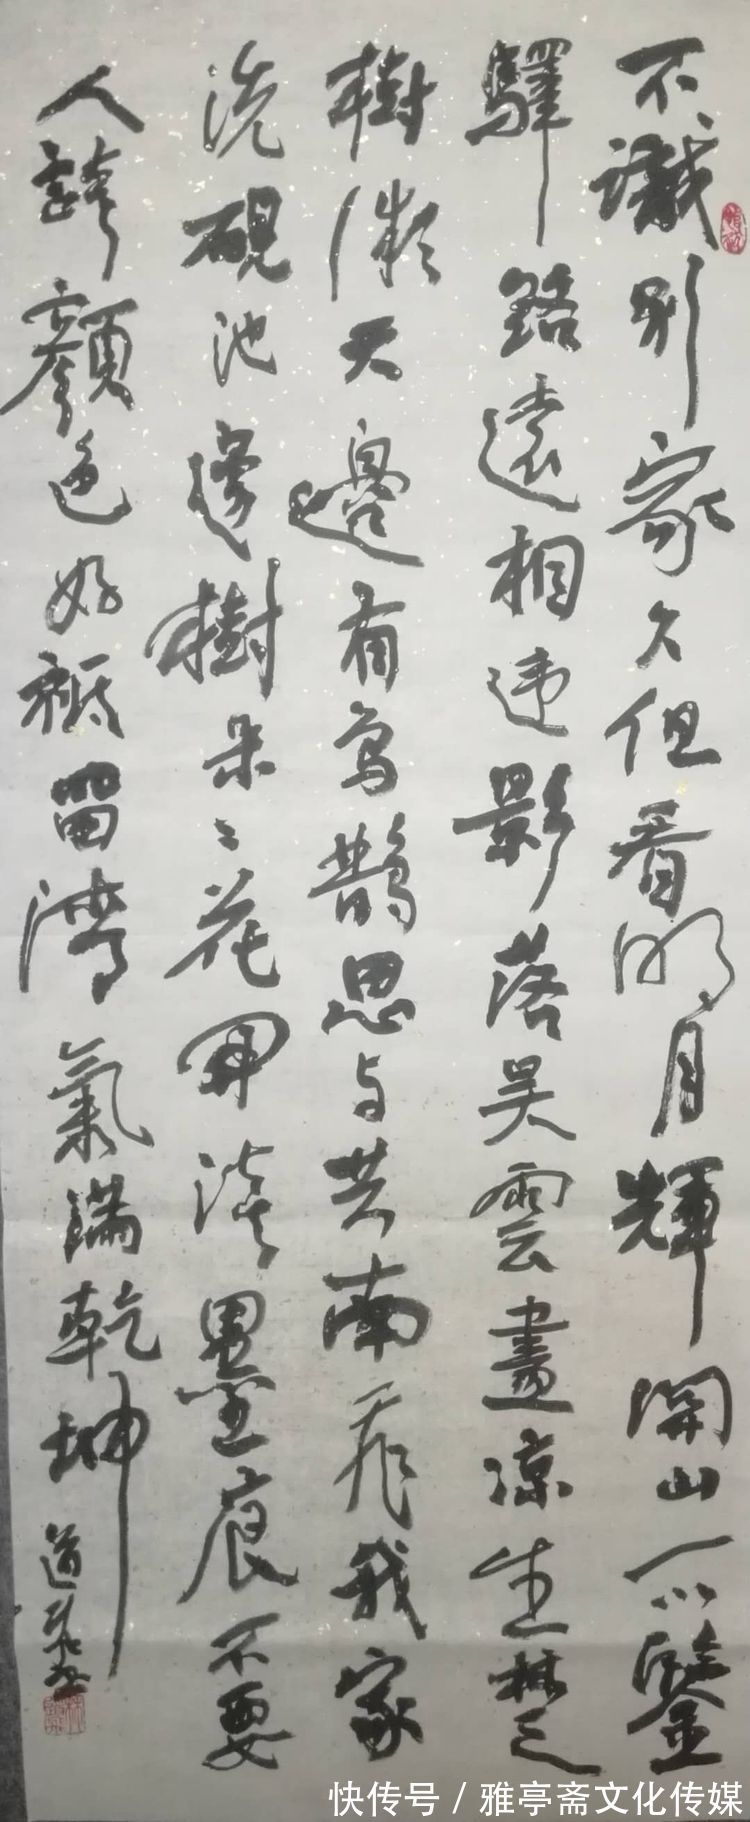 不識別家久但看明月輝関山一以鑒
驛路遠相違影落吴雲盡凉生楚
樹微天邊有烏鵲思与共南飛我家
洗硯池邊樹朵〻花開淡墨痕不要
人誇顏色好祗留清氣滿乾坤
道
快传号 / 雅亭斋文化传媒